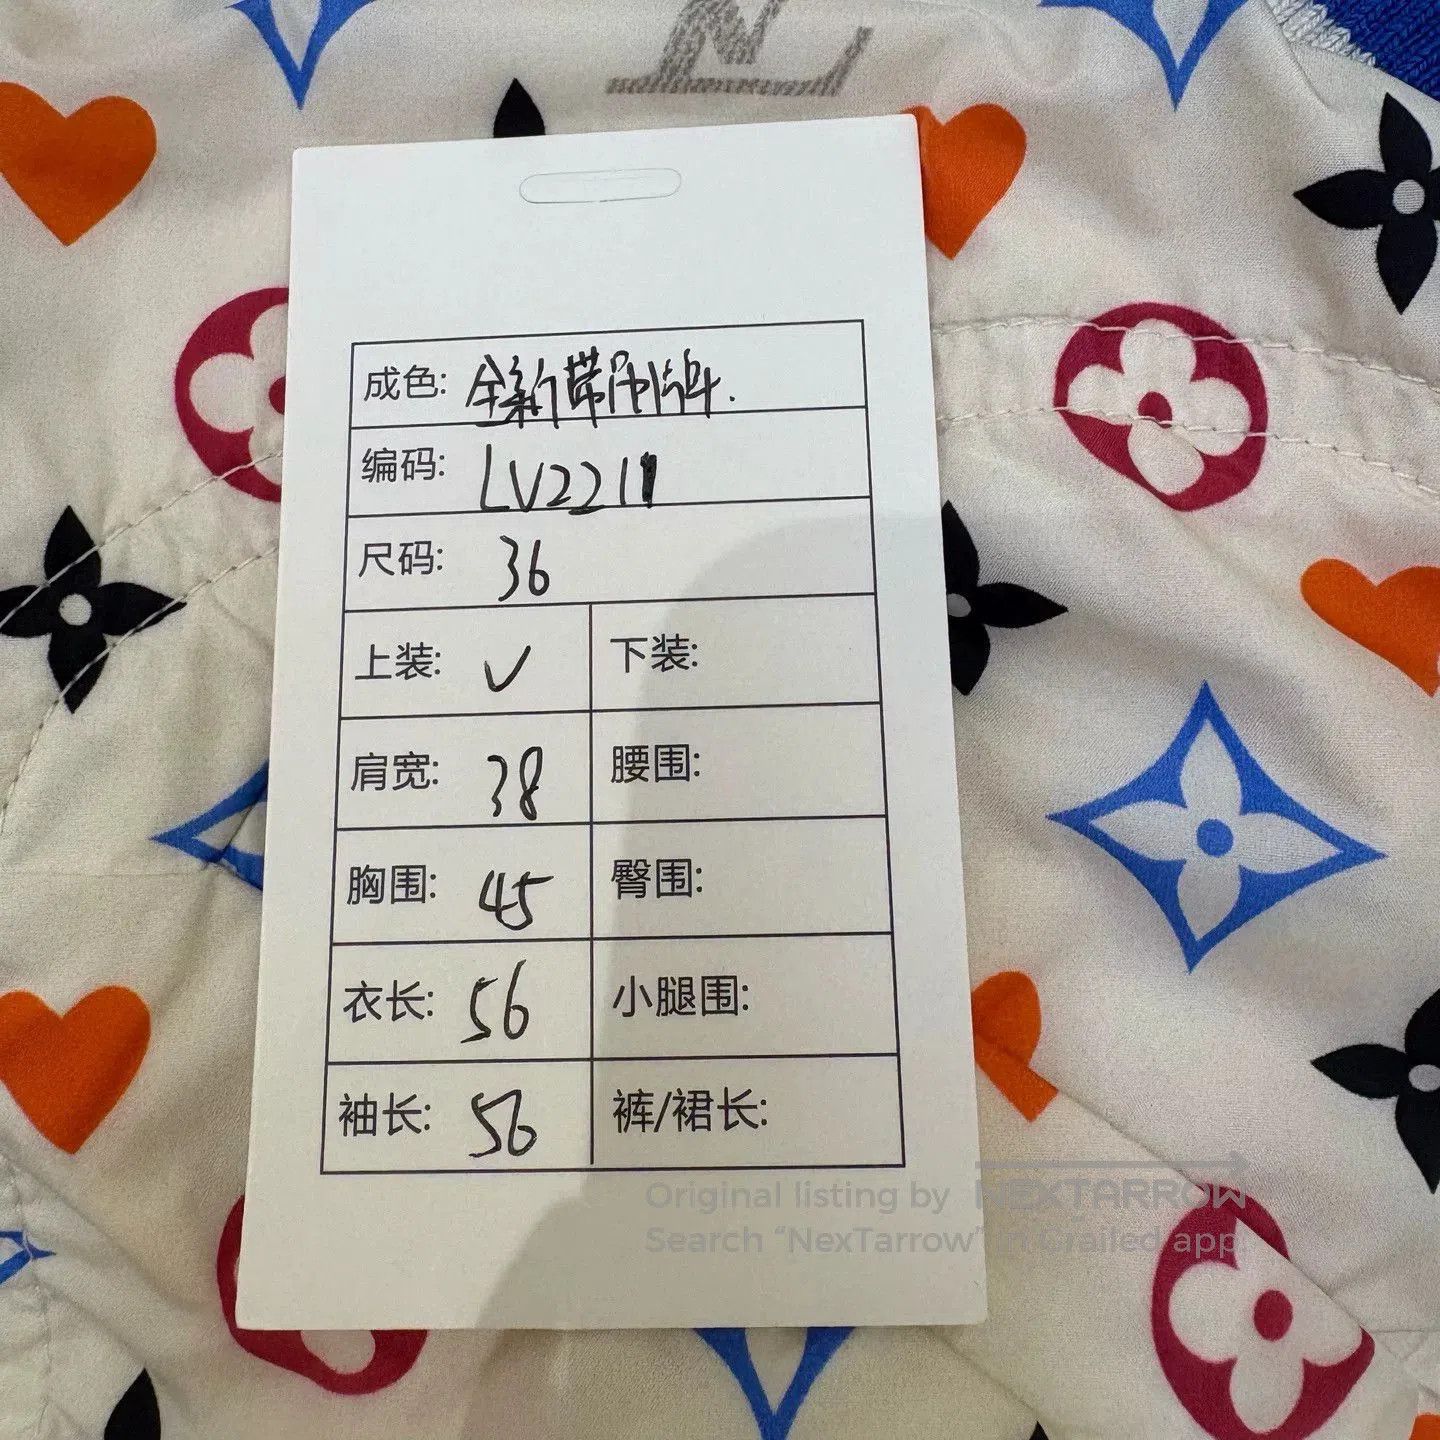 成色: 全新带吊牌.
编码: LV2211
尺码: 36
上装: ✓ 下装:
肩宽: 38 腰围:
胸围: 45 臀围:
衣长: 56 小腿围:
袖长: 56 裤/裙长:
Original listing by NEXTARROW
Search “NexTarrow” in Grailed app.